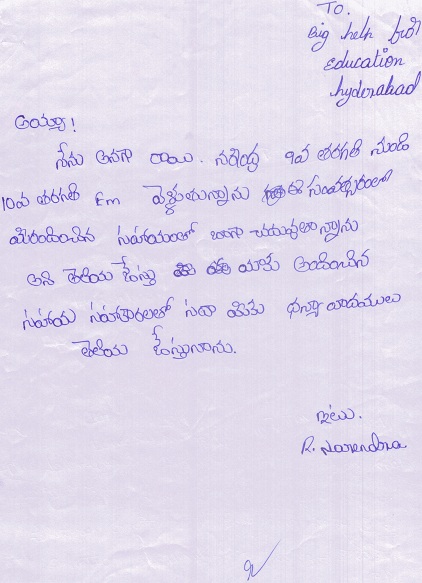 To.
Big help for
Education
hyderabad
అయ్యా!
నేను అనగా రాయి. నరేంద్ర 9వ తరగతి నుండి
10వ తరగతి Em వెళ్ళుతున్నాను ఈ సంవత్సరంలో
మీరందించిన సహాయంతో బాగా చదువుతున్నాను
అని తెలియ జేస్తు మాకు అందించిన
సహాయ సహకారాలతో సదా మీకు ధన్యావాదములు
తెలియ జేస్తునాను.
ఇట్లు.
R. Narendra